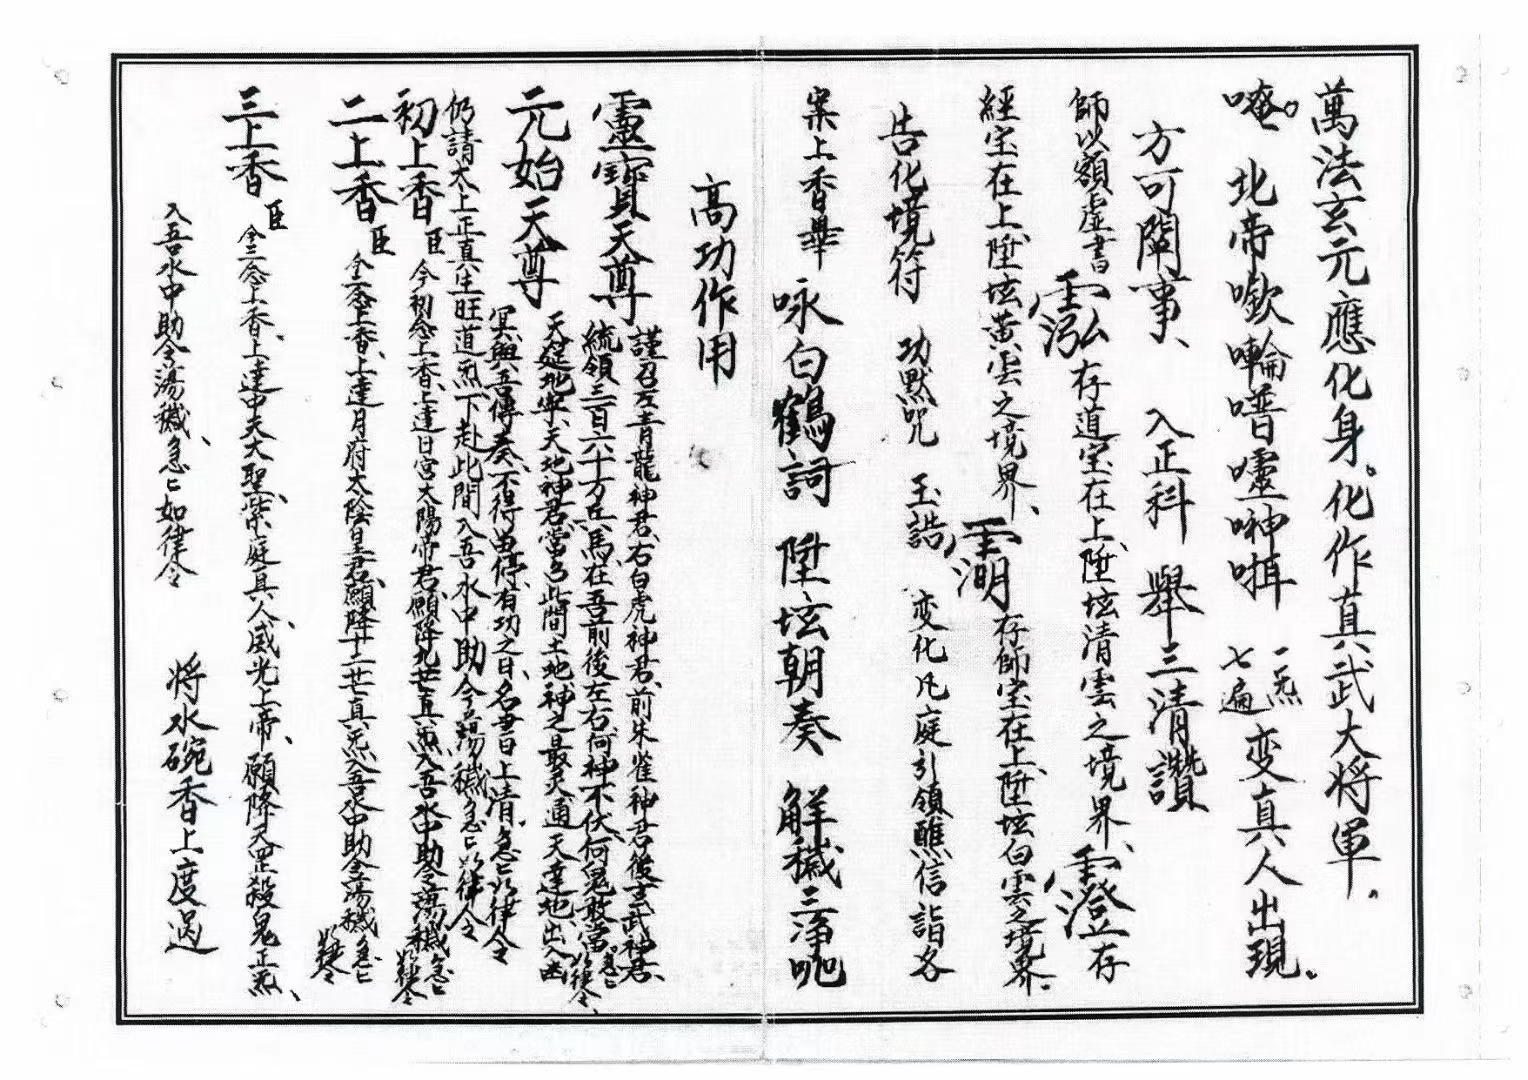 萬法玄元應化身。化作真武大將軍。
唵。北帝㗲㘕噆𡅖𠸄㖇 一炁七遍 变真人出現。
方可闡事、 入正科 舉三清讚
師以額虛書 存道宝在上陞坛清雲之境界、 存
經宝在上陞坛黃雲之境界、 存師宝在上陞坛白雲之境界。
告化境符 功默咒 玉誥 变化凡庭引領醮信詣各
案上香舉 咏白鶴詞 陞坛朝奏 解穢三淨呪
高功作用
靈寶天尊 謹召左青龍神君、右白虎神君、前朱雀神君、後玄武神君、
統領三百六十万兵馬、在吾前後左右、何神不伏、何鬼敢當、急〻如律令、
元始天尊 天延地寧、天地神君、當召此間土地神之最灵、通天達地、出入幽
冥、與吾傳奏、不得留停、有功之日、名書上清、急〻如律令
仍請太上正真生旺道炁下赴此間入吾水中助令蕩穢、急〻如律令
初上香 臣 今初念上香、上達日宮太陽帝君、願降九芒真炁入吾水中助令蕩穢、急〻如律令
二上香 臣 今二念上香、上達月府太陰皇君、願降十二芒真炁入吾水中助令蕩穢、急〻如律令
三上香 臣 今三念上香、上達中天大聖紫庭真人、威光上帝、願降天罡殺鬼正炁、
入吾水中助令蕩穢、急〻如律令 將水碗香上度過